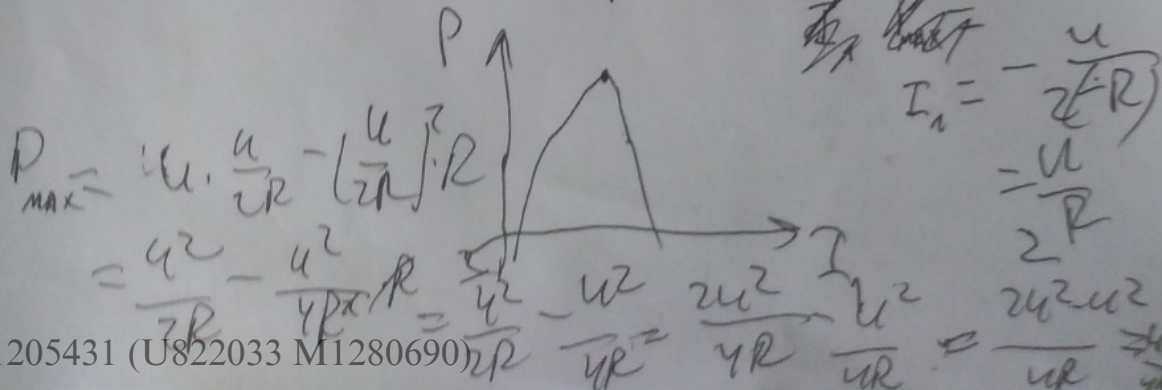 P
I₁ = - u / 2(-R)
= u / 2R
P MAX = u · u/2R - (u/2R)² · R
= u²/2R - u²/4R² R = u²/2R - u²/4R = 2u²/4R - u²/4R = 2u²-u²/4R =
I
205431 (U822033 M1280690)